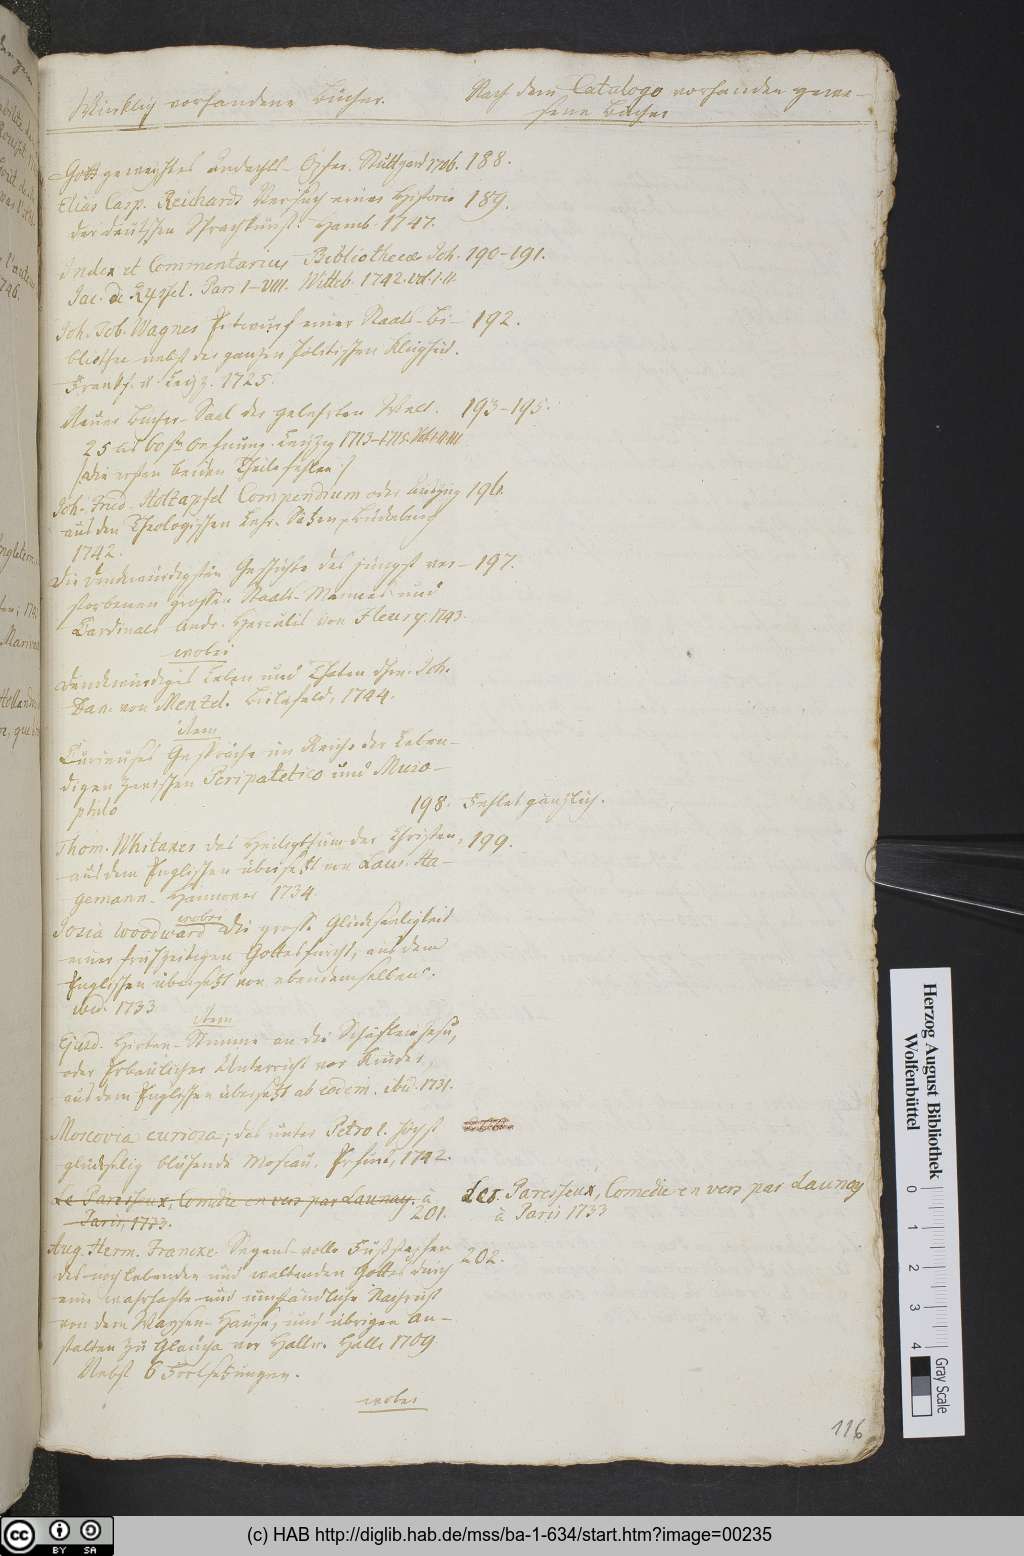 Wirklich vorhandene Bücher.
Nach dem Catalogo vorhanden gewe-
sene Bücher
Gott geweyhtes Andachts-Opfer. Stuttgard 1726. 188.
Elias Casp. Reichards Versuch einer Historie 189.
der deutschen Sprachkunst. Hamb. 1747.
Index et Commentarius Bibliothecae Joh. 190-191.
Jac. de Ryssel. Pars I-VIII. Witteb. 1742. Vol. I. II.
Joh. Tob. Wagners Entwurf einer Staats-Bi- 192.
bliothec nebst der ganzen Politischen Klugheit.
Frankf. u. Leipz. 1725.
Neuer Bücher-Saal der gelehrten Welt. 193-195.
25 bis 60ste Oefnung. Leipzig 1713-1715. Vol. I. II. III.
/:die ersten beiden Theile fehlen:/
Joh. Fried. Holtzapfel Compendium oder Auszug 196.
aus den Theologischen Lehr-Sätzen. Bückeburg
1742.
Die denckwürdigsten Geschichte des jüngst ver- 197.
storbenen grossen Staats-Mannes und
Cardinals Andr. Hercules von Fleury. 1743.
wobei
denckwürdiges Leben und Thaten Hrn. Joh.
Dan. von Menzel. Bielefeld, 1744.
item
Curieuses Gespräche im Reiche der Leben-
digen zwischen Peripatetico und Muso-
philo
198. Fehlet gänzlich.
Thom. Whitakers das Heiligthum der Christen, 199.
aus dem Englischen übersetzt von Laur. Ha-
gemann. Hannover 1734
wobei
Josia Woodward die grosse Glückseeligkeit
einer frühzeitigen Gottesfurcht, aus dem
Englischen übersetzt von ebendemselben.
ibid. 1733
item
Ejusd. Hirten-Stimme an die Schäflein Jesu,
oder Erbaulicher Unterricht vor Kinder,
aus dem Englischen übersetzt ab eodem. ibid. 1731.
Moscovia curiosa, das unter Petro I. höchst
glückselig blühende Moscau. Erfurt, 1742.
Le Paresseux, Comedie en vers par Launay. à
Paris, 1733.
201. Les Paresseux, Comedie en vers par Launay
à Paris 1733
Aug. Herm. Francke Segens-volle Fußstapfen 202.
des noch lebenden und waltenden Gottes durch
eine wahrhafte und umständliche Nachricht
von dem Waysen-Hause, und übrigen An-
stalten zu Glaucha vor Halle. Halle 1709
Nebst 6 Fortsetzungen.
wobei
116
Herzog August Bibliothek
Wolfenbüttel
0 1 2 3 4
Gray Scale
cc BY SA
(c) HAB http://diglib.hab.de/mss/ba-1-634/start.htm?image=00235